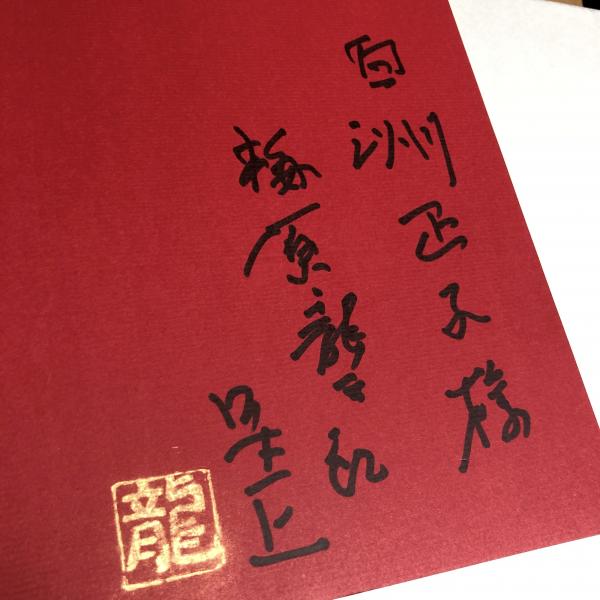 白洲正子様
梅原龍三郎
呈上
龍